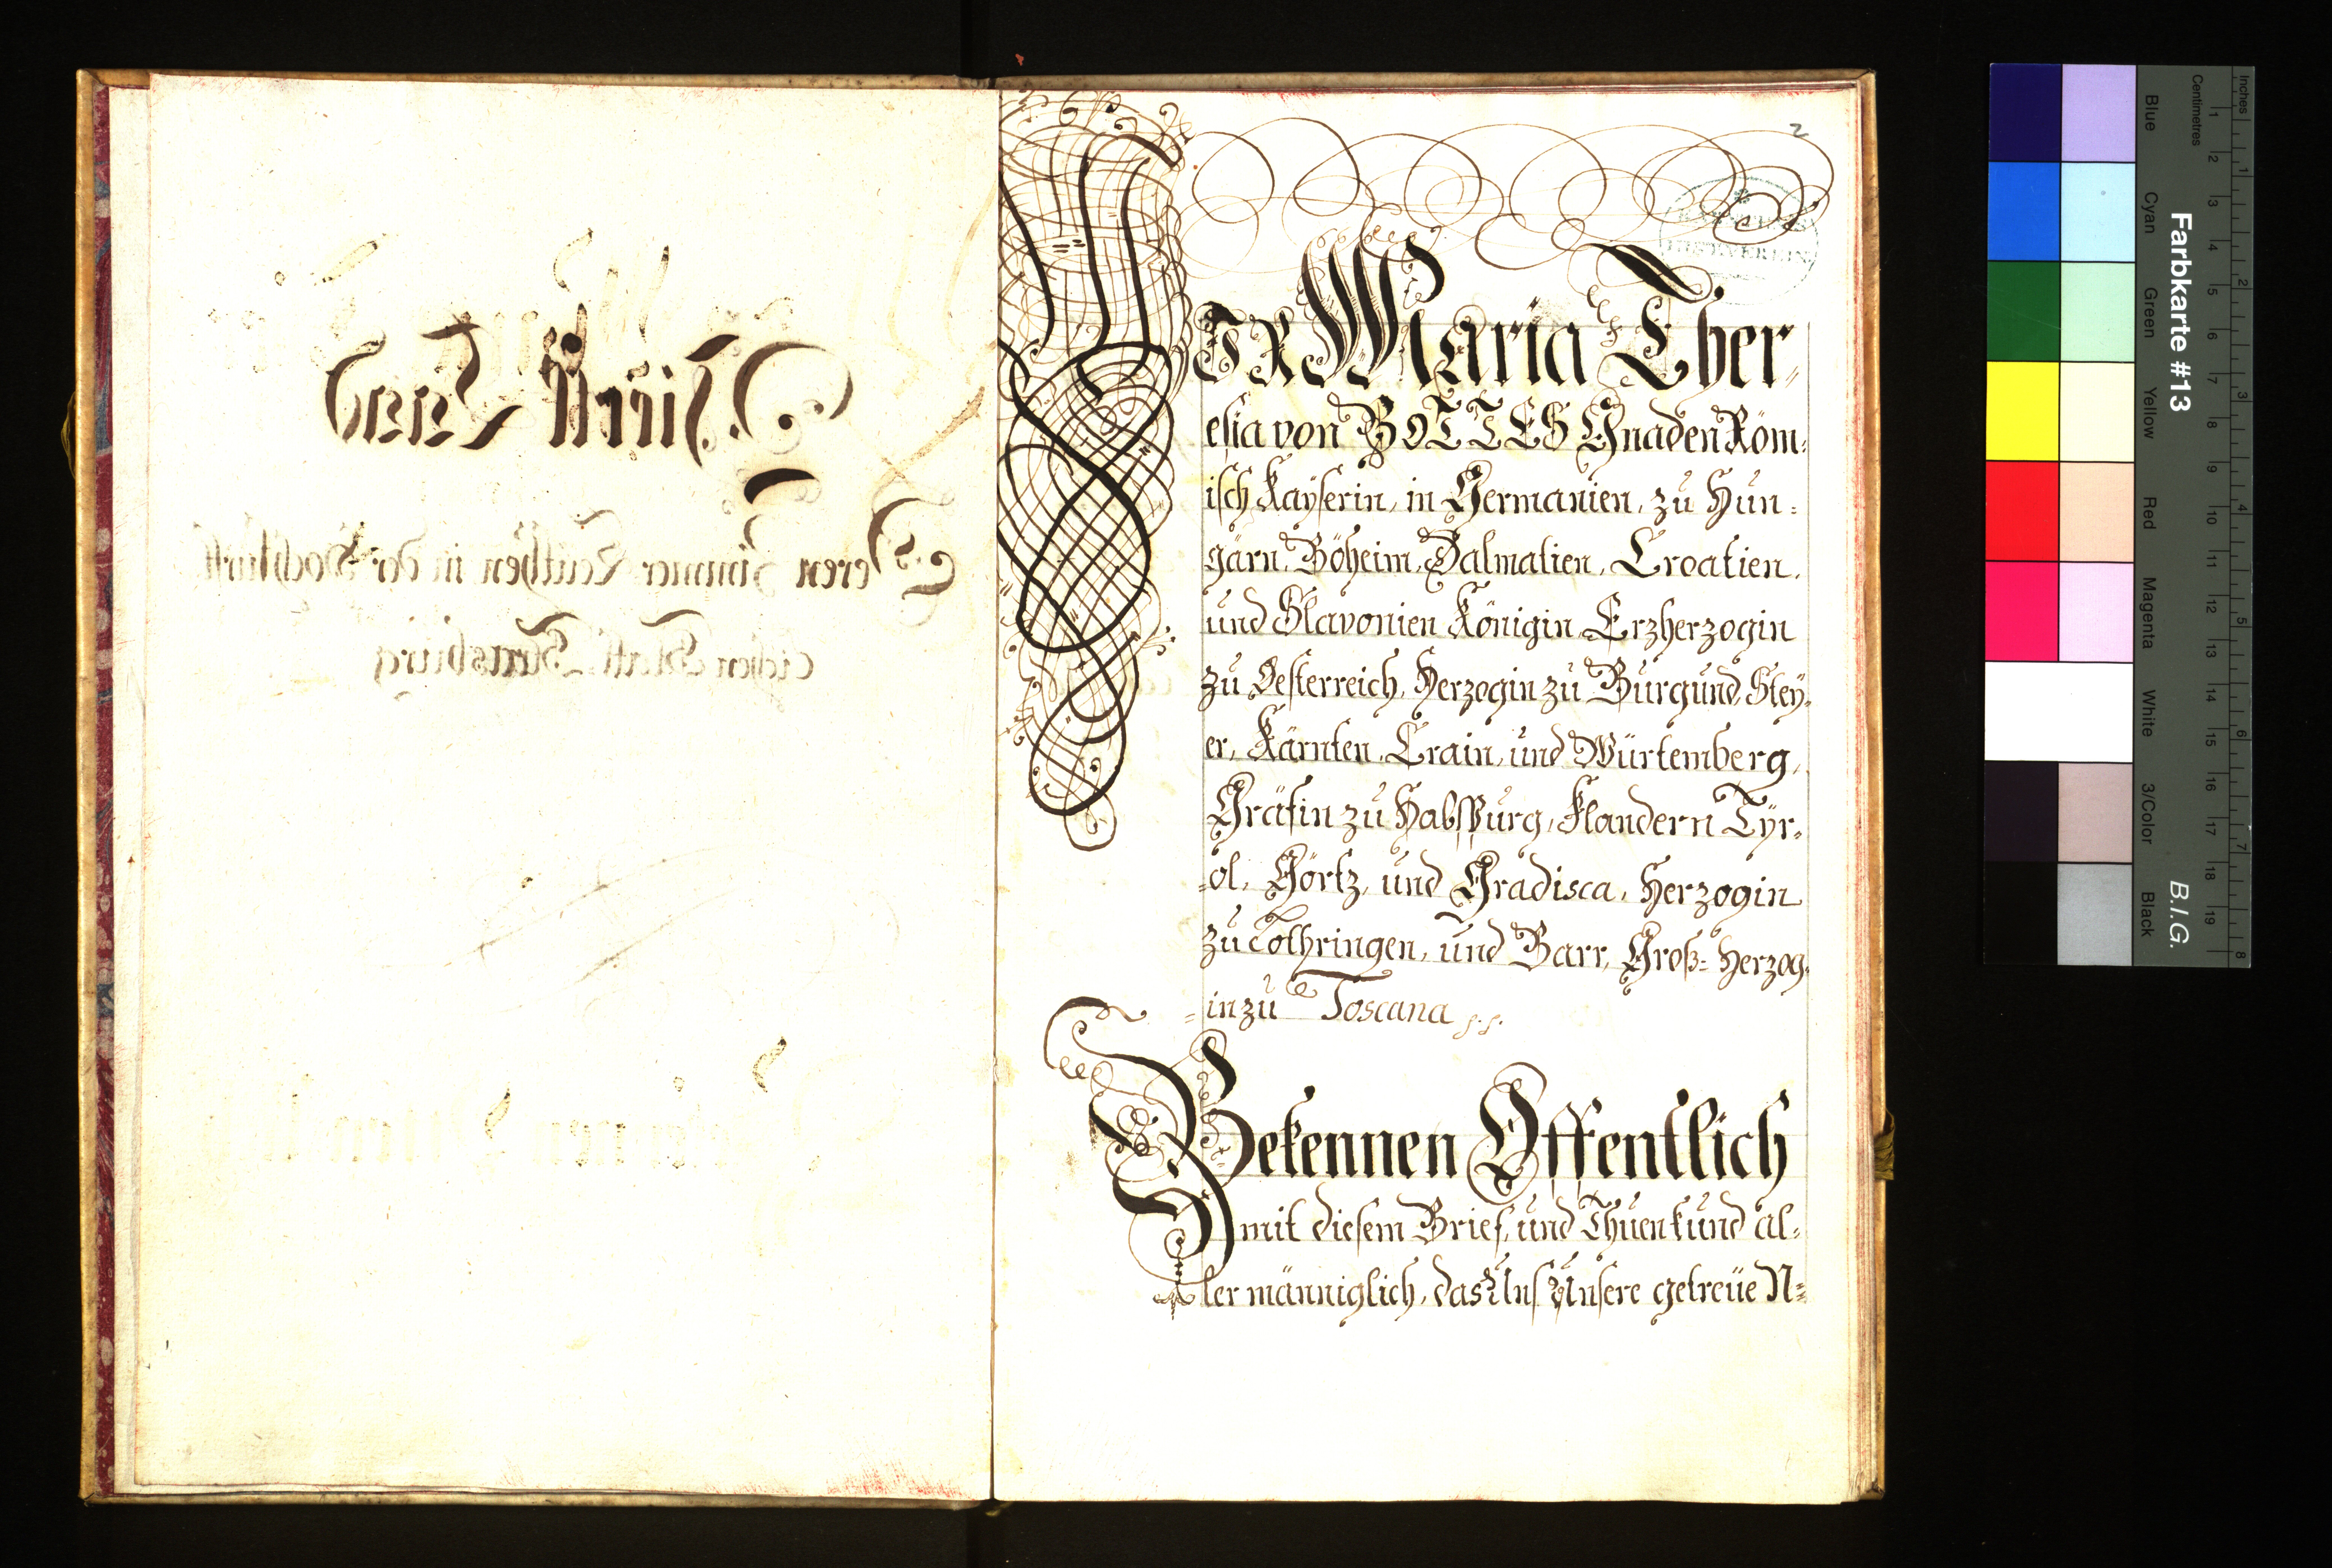 2
WIR Maria Ther-
esia von GOTTES Gnaden Röm-
isch Kaÿserin, in Germanien, zu Hun-
garn, Böheim, Dalmatien, Croatien,
und Slavonien Königin, Erzherzogin
zu Oesterreich, Herzogin zu Burgund, Steÿ-
er, Kärnten, Crain, und Würtemberg,
Gräfin zu Habspurg, Flandern Tyr-
=ol, Görtz, und Gradisca, Herzogin
zu Lothringen, und Barr, Groß= Herzog-
=in zu Toscana
Bekennen Offentlich
mit diesem Brief, und Thuen kund al-
ler männiglich, das Uns Unsere getreüe N=
Deren Zimmer Leuthen in der Hochfürst
lichen Statt Strasburg
Farbkarte #13
B.I.G.
Blue
Cyan
Green
Yellow
Red
Magenta
White
3/Color
Black
Centimetres
Inches
1 2 3 4 5 6 7 8 9 10 11 12 13 14 15 16 17 18 19
1 2 3 4 5 6 7 8